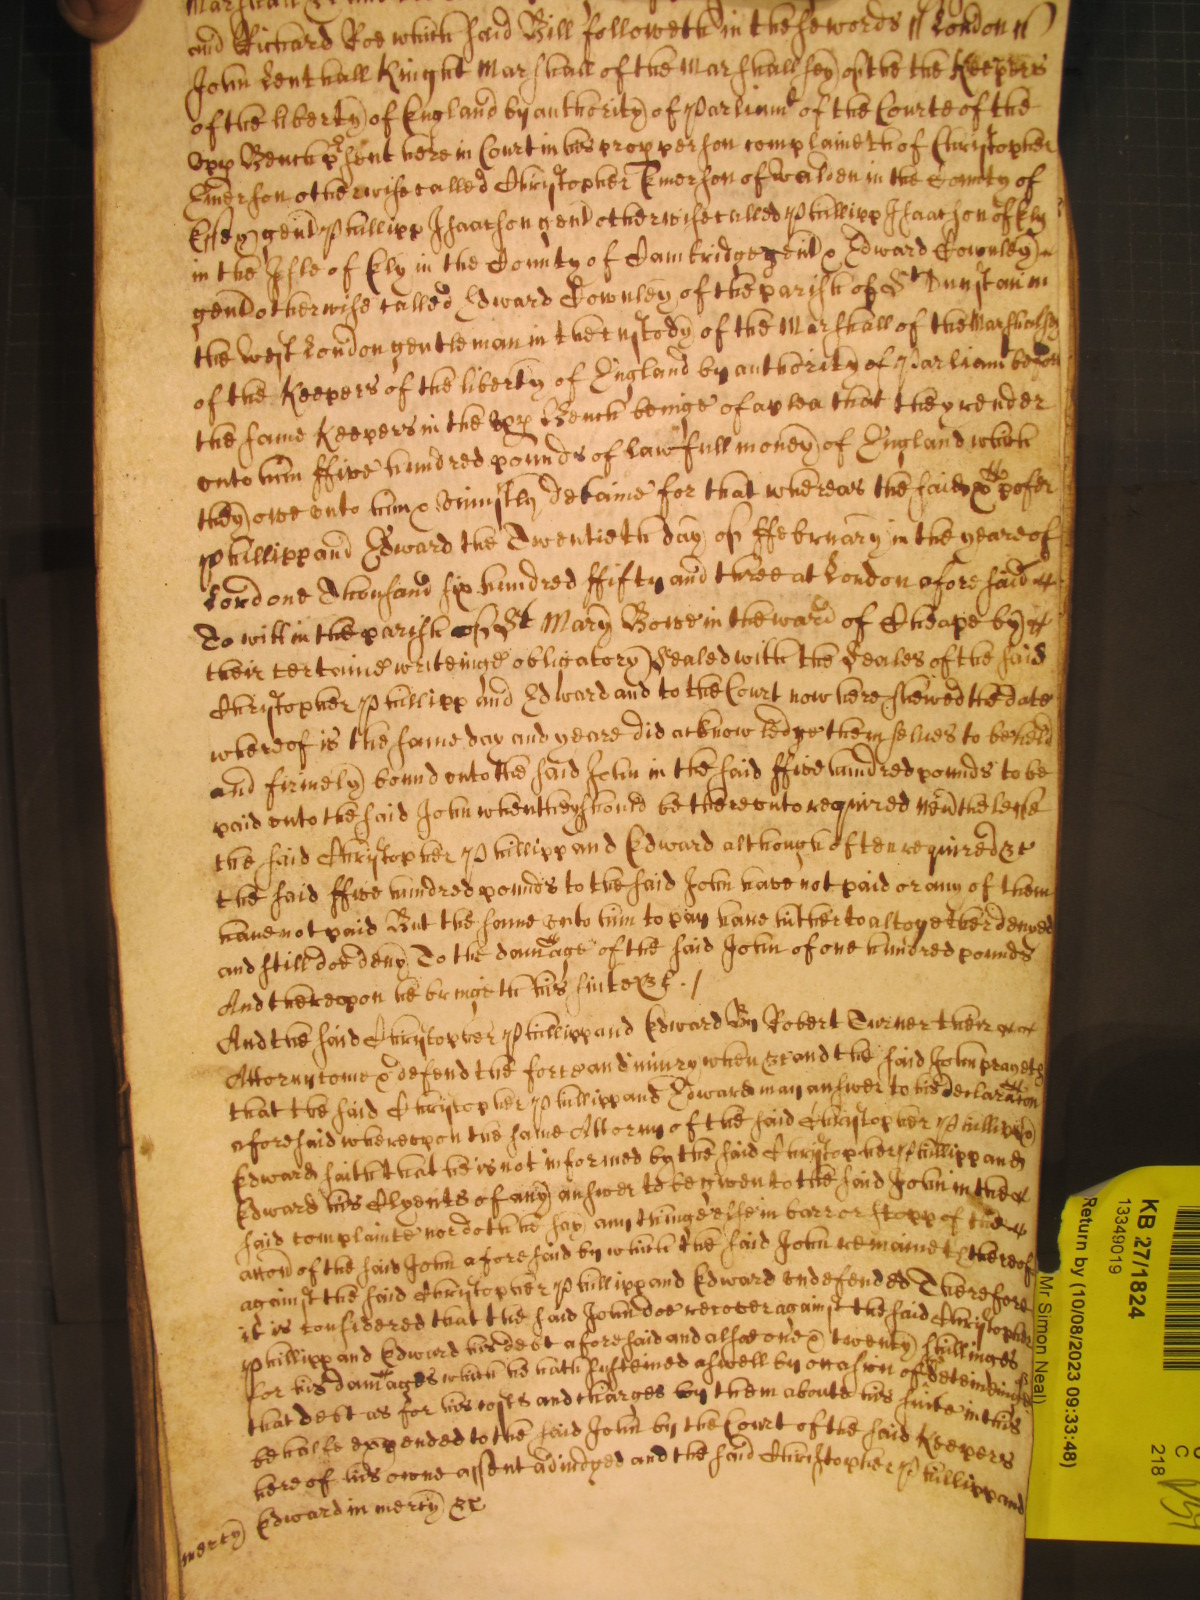 and Richard Roe which said Bill followeth in these words // London //
John Lenthall Knight Marshall of the Marshallsey of the the Keepers
of the liberty of England by authority of Parliamt of the Courte of the
upp Bench psent here in Court in his propper son complaineth of Christopher
Emerson otherwise called Christopher Emerson of Walden in the County of
Essex gent Phillipp Isaacson gent otherwise called Phillipp Isaacson of Ely
in the Isle of Ely in the County of Cambridge gent & Edward Cownley
gent otherwise called Edward Cownley of the parish of St Dunstan in
the West London gentleman in the custody of the Marshall of the Marshalsey
of the Keepers of the liberty of England by authority of Parliamt before
the same Keepers in the upp Bench beinge of a plea that they render
unto him ffive hundred pounds of lawfull money of England which
they owe unto him & uniustly detaine for that whereas the said Xpofer
Phillipp and Edward the Twentieth day of ffebruary in the yeare of
Lord one Thousand six hundred ffifty and three at London aforesaid
To witt in the parish of St Mary Bowe in the ward of Cheape by
their certaine writeinge obligatory Sealed with the Seales of the said
Christopher Phillipp and Edward and to the Court now here shewed the date
whereof is the same day and yeare did acknowledge themselues to be held
and firmely bound unto the said John in the said ffive hundred pounds to be
paid unto the said John when they should be thereunto required neuthelesse
the said Christopher Phillipp and Edward although often required &c
the said ffive hundred pounds to the said John have not paid or any of them
haue not paid But the same unto him to pay haue hitherto altogether denyed
and still doe deny To the damage of the said John of one hundred pounds
And thereupon he bringeth his suite &c . /
And the said Christopher Phillipp and Edward By Robert Turner their
Attorny come & defend the force and iniury when &c and the said John prayeth
that the said Christopher Phillipp and Edward may answer to his declaration
aforesaid whereupon the same Attorny of the said Christopher Phillipp &
Edward saith that he is not informed by the said Christopher Phillipp and
Edward his Clyents of any answer to be given to the said John in the
said complainte nor doth he say any thinge else in barr or stopp of the
accon of the said John aforesaid by which the said John remaineth thereof
against the said Christopher Phillipp and Edward undefended Therefore
it is considered that the said John doe recover against the said Christopher
Phillipp and Edward his debt aforesaid and alsoe one & twenty shillinges
for his damages which he hath susteined aswell by occasion of the deteininge
that debt as for his costs and charges by them aboute his suite in this
behalfe expended to the said John by the Court of the said Keepers
here of his owne assent adiudged and the said Christopher Phillipp and
Edward in mercy &c
mercy
KB 27/1824
13349019
Return by (10/08/2023 09:33:48)
Mr Simon Neal)
C
218